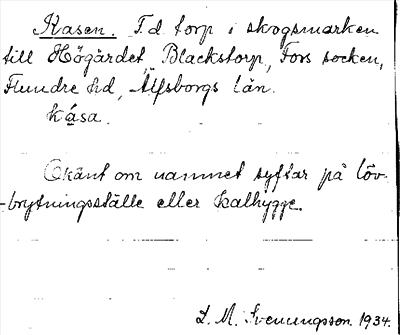 Kasen. F.d. torp i skogsmarken
till Högärdet, Blackstorp, Fors socken,
Flundre hd, Älfsborgs län.
kása.
Okänt om namnet syftar på löv-
brytningsställe eller kalhygge.
L. M. Svenungsson 1934.